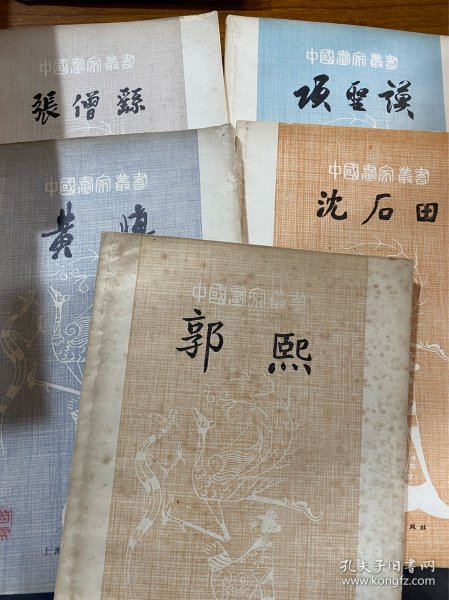 中國畫家叢書
張僧繇
中國畫家叢書
項聖謨
中國畫家叢書
黃慎
中國畫家叢書
沈石田
中國畫家叢書
郭熙
上海
版社
孔夫子旧书网
www.kongfz.com